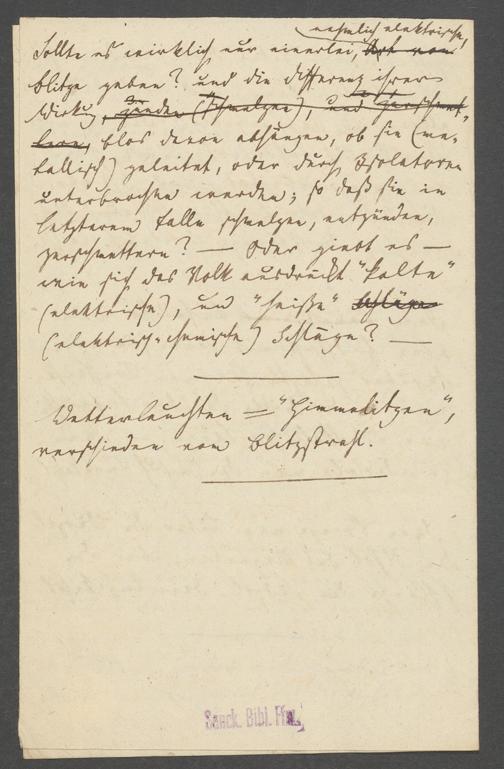 nehmlich elektrische,
Sollte es wirklich nur einerlei, Art von
Blitze geben? und die Differenz ihrer
Wirkung, zünden (Schmelzen), und zerschmet-
tern, blos davon abhängen, ob sie (me-
tallisch) geleitet, oder durch Isolatoren
unterbrochen werden; so daß sie in
letzterem Falle schmelzen, entzünden,
zerschmettern? — Oder giebt es —
wie sich das Volk ausdrückt "kalte"
(elektrische), und "heiße" Schläge
(elektrisch-chemische) Schläge? —
Wetterleuchten = "Himmelitzen",
verschieden vom Blitzstrahl.
Senck. Bibl. Ffm.